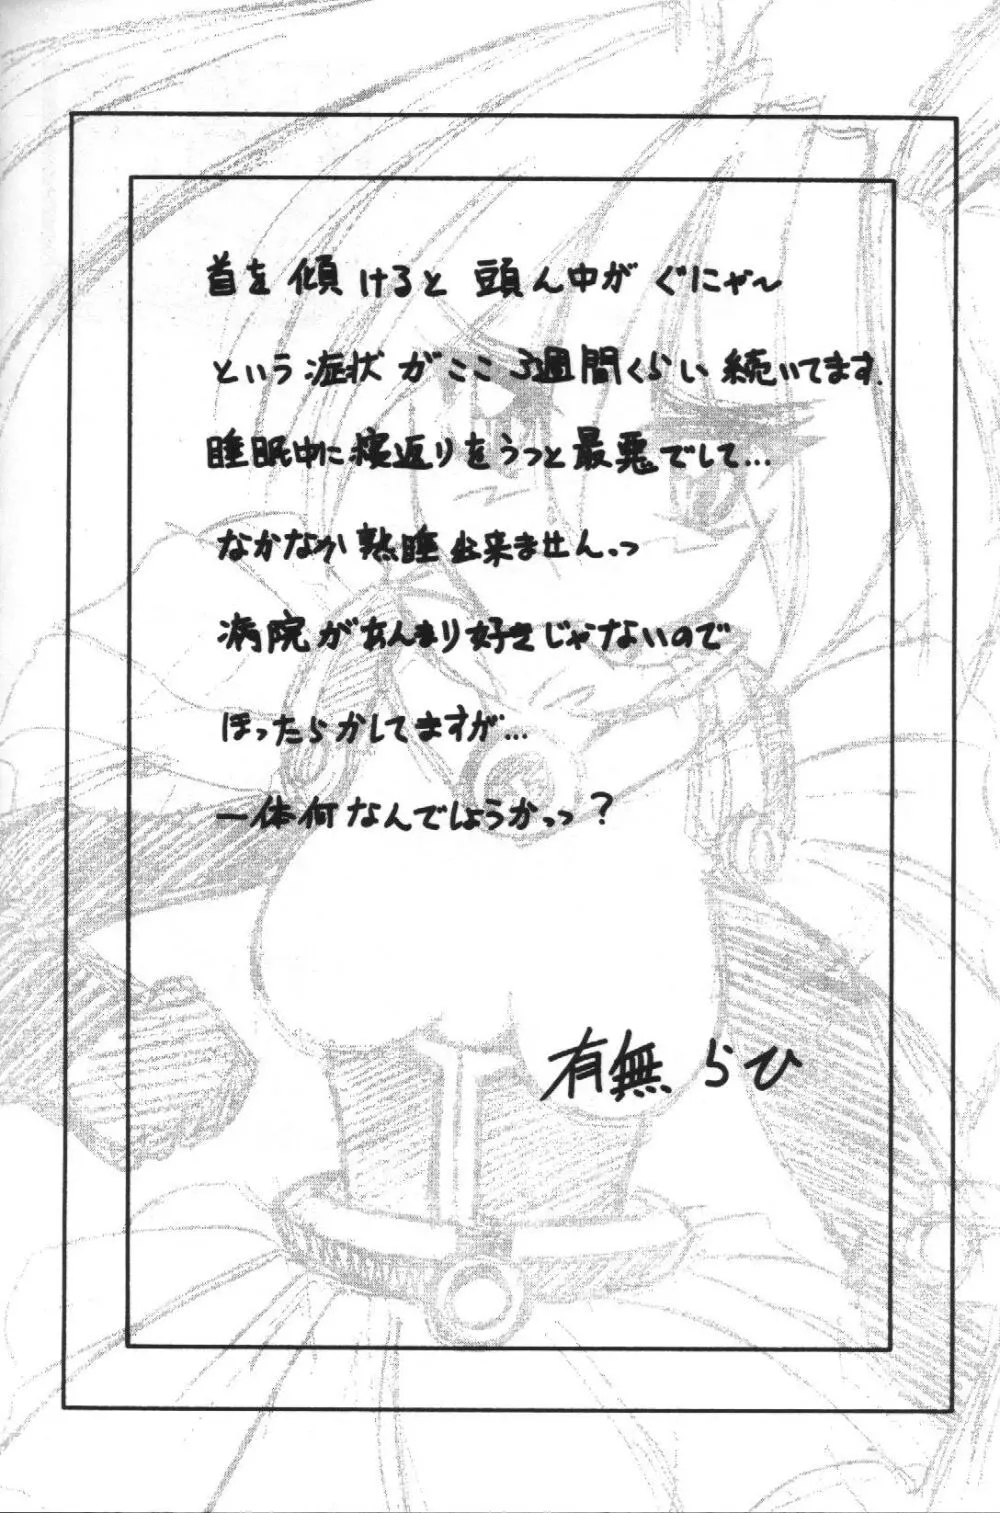 首を傾けると 頭ん中が ぐにゃ〜
という症状がここ3週間くらい続いてます.
睡眠中に寝返りをうつと最悪でして…
なかなか熟睡出来ませんっつ
病院があんまり好きじゃないので
ほったらかしてますが…
一体何なんでしょうかっつ?
有無らひ